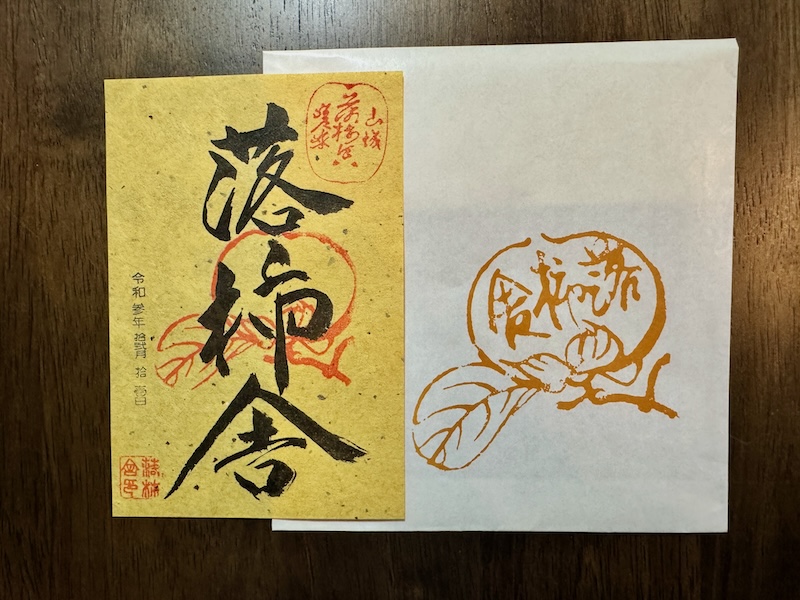 山城
落柿舎
落柿舎
令和 参年 拾弐月 拾 壱日
落柿
舎印
落柿舎